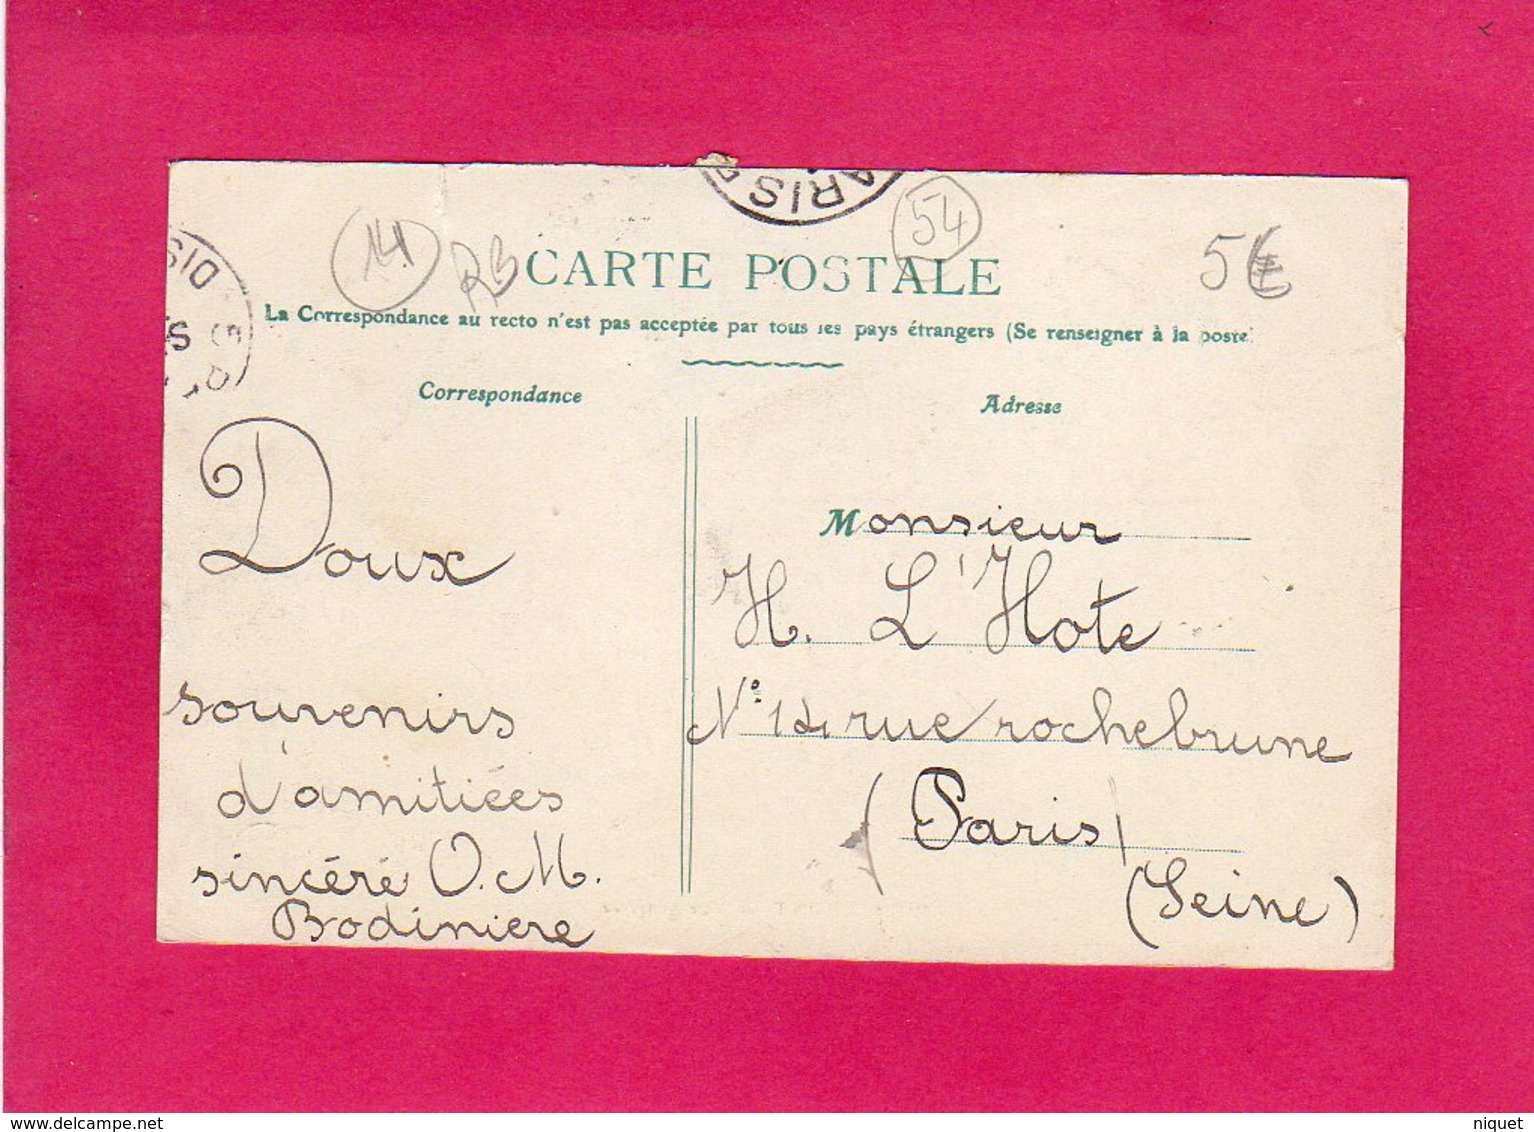 PARIS
DIS
54
RB
5€
CARTE POSTALE
La Correspondance au recto n'est pas acceptée par tous les pays étrangers (Se renseigner à la poste)
Correspondance
Adresse
Doux
souvenirs
d'amitiées
sincéré O. M.
Bodiniere
Monsieur
H. L'Hote
N° 14 rue rochebrune
(Paris)
(Seine)
www.delcampe.net
niquet